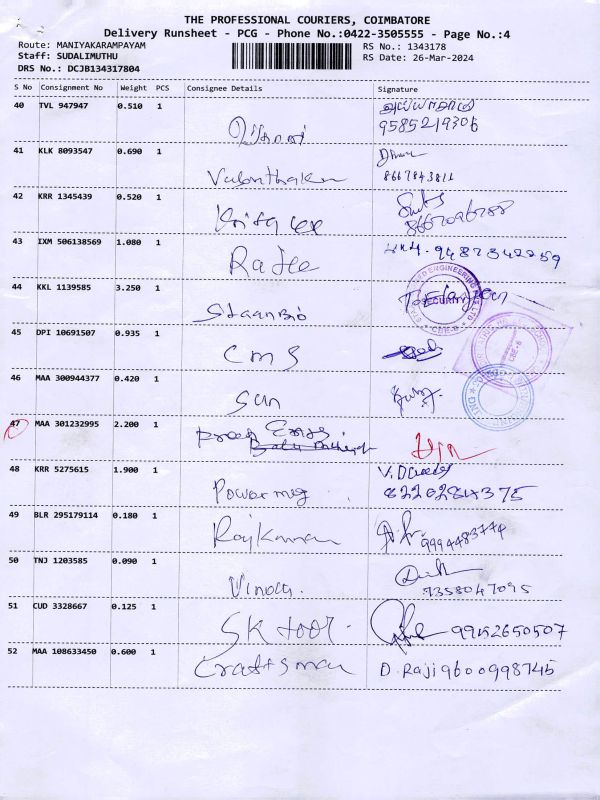 THE PROFESSIONAL COURIERS, COIMBATORE
Delivery Runsheet - PCG - Phone No.:0422-3505555 - Page No.:4
Route: MANIYAKARAMPAYAM RS No.: 1343178
Staff: SUDALIMUTHU RS Date: 26-Mar-2024
DRS No.: DCJB134317804
S No Consignment No Weight PCS Consignee Details Signature
40 TVL 947947 0.510 1
9585219306
41 KLK 8093547 0.690 1
Vasanthakumar 8667843811
42 KRR 1345439 0.520 1
43 IXM 506138569 1.080 1
Rajee 9487342259
44 KKL 1139585 3.250 1
45 DPI 10691507 0.935 1
CMS
46 MAA 300944377 0.420 1
Sun
47 MAA 301232995 2.200 1
48 KRR 5275615 1.900 1
Powermeg 8220284375
49 BLR 295179114 0.180 1
Rajkumar 9994483774
50 TNJ 1203585 0.090 1
Vinoth. 7358047095
51 CUD 3328667 0.125 1
SK tool. 9952650507
52 MAA 108633450 0.600 1
Craftsman D. Raji 9600998745